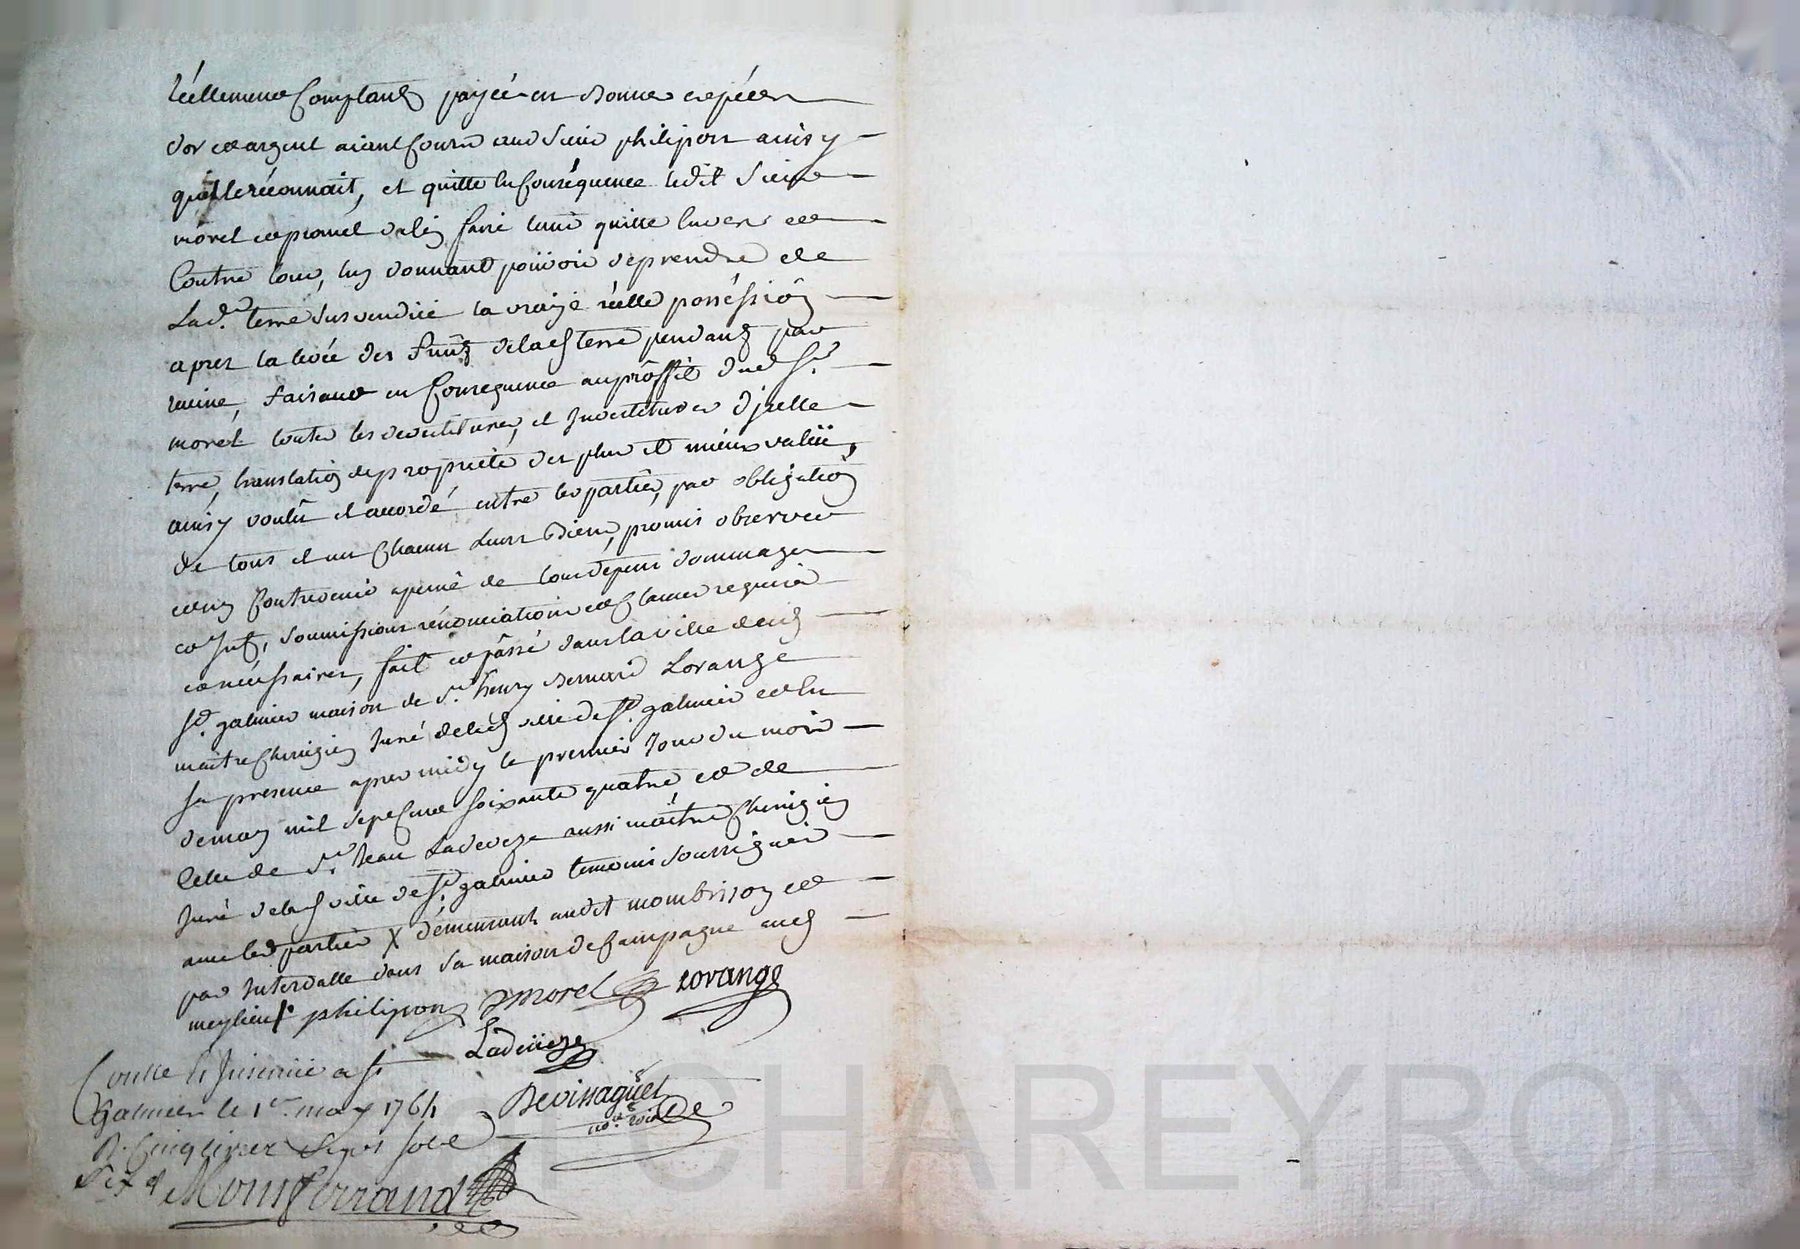 réellement Comptant payée en Bonnes espéces
dor et argent aiant Cours aud Sieur philipon ainsy
qu'il le réconnait, et quitte en Conséquence ledit Sieur
morel et promet de len faire tenir quitte Envers et
Contre tous, luy donnant pouvoir de prendre de
Lad.e terre sus vendüe la vraÿe réelle posséssion
apres la levée des fruits de lad terre pendants par
racine, faisant en Consequence au proffit dud S.r
morel toutes les devestitures, et Investitures d'jcelle
terre, translation de proprieté des plus et mieux value,
ainsy voulû et accordé entre les parties, par obligation
de tous et un Chacun Leurs Biens, promis observer
et ny Contrevenir a peine de tous dépens dommages
et Int, soumissions rénonciations et Clauses requises
et nécéssaires, fait et passé dans la ville dud
S.t galmier maison de S.r henry Bernard Lorange
maitre Chirugien Juré de lad ville de S.t galmier et En
sa presence apres midy le premier Jour du mois
de may mil sept Cent soixante quatre et de
Celle de S.r Jean Ladeveze aussi maitre Chirugien
Juré de lad ville de S.t galmier temoins soussignés
avec les parties X démeurant audit mombrison et
par Intervalle dans sa maison de Campagne aud
meylieu philipon morel Lorange
Ladeveze
Controllé et Insinüé a S.t
Galmier le 1.er may 1764 Devissaguet
R. Cinq livres Sept sols no.re Roial
Six d Montferrand
CHAREYRON